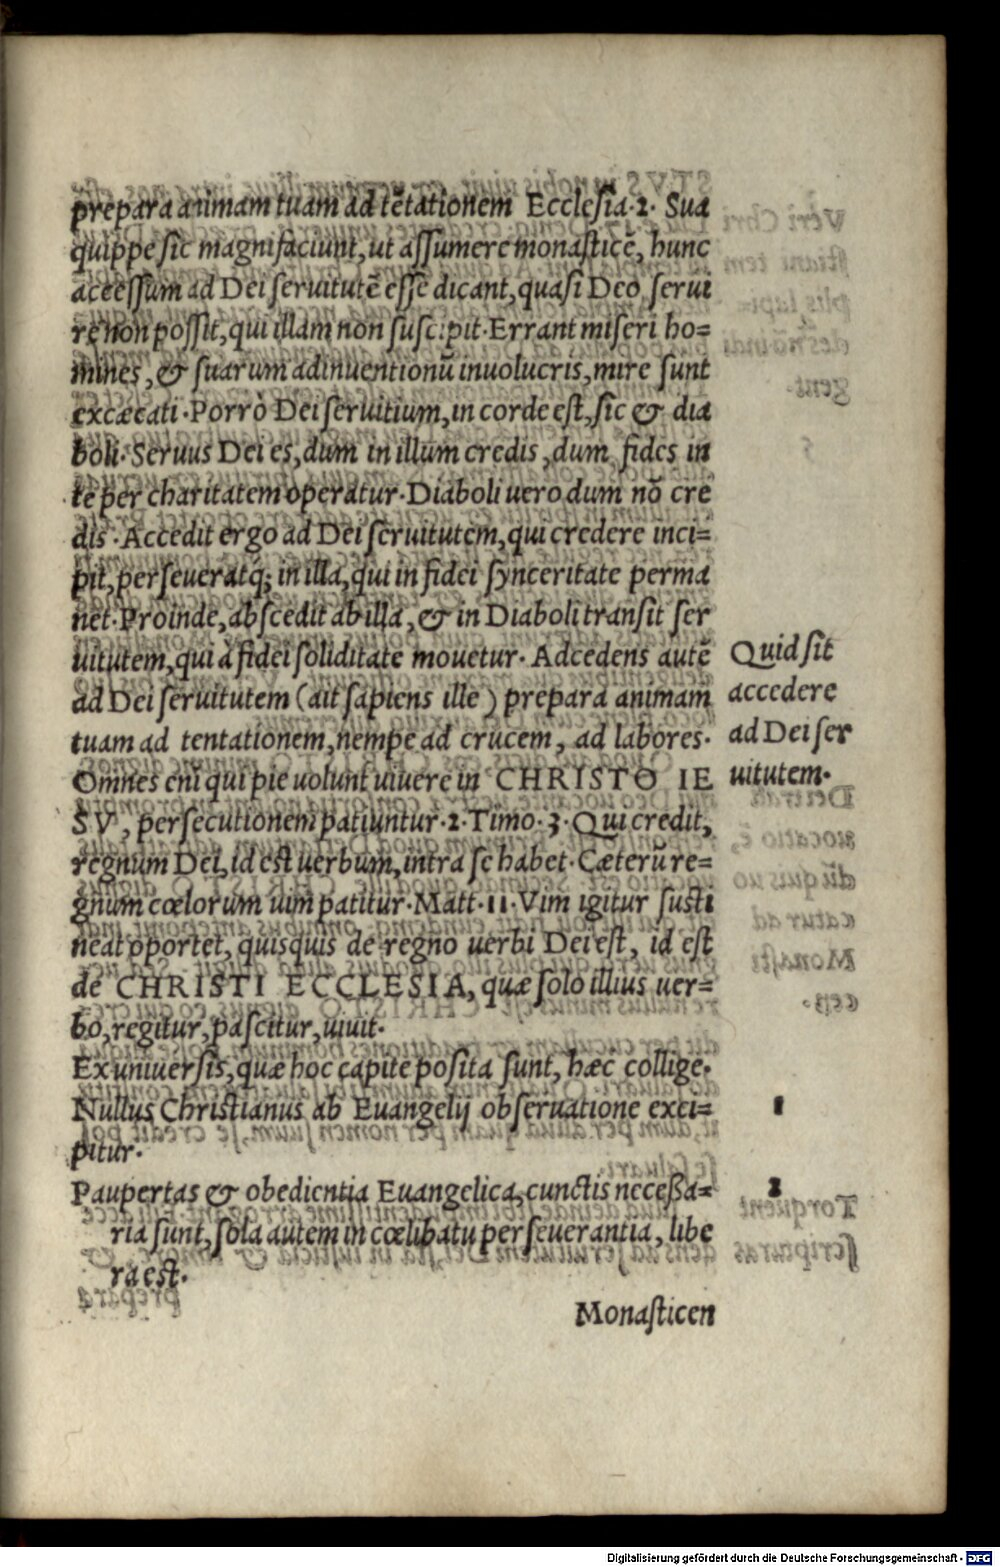 prepara animam tuam ad tētationem Ecclesia·2· Sua
quippe sic magnifaciunt, ut assumere monasticē, hunc
accessum ad Dei seruitutē esse dicant, quasi Deo serui
re non possit, qui illam non suscipit· Errant miseri ho=
mines, & suarum adinuentionū inuolucris, mire sunt
excæcati· Porrò Dei seruitium, in corde est, sic & dia
boli· Seruus Dei es, dum in illum credis, dum fides in
te per charitatem operatur· Diaboli uero dum nō cre
dis· Accedit ergo ad Dei seruitutem, qui credere inci=
pit, perseueratq; in illa, qui in fidei synceritate perma
net· Proinde, abscedit ab illa, & in Diaboli transit ser
uitutem, qui à fidei soliditate mouetur· Adcedens autē
ad Dei seruitutem (ait sapiens ille) prepara animam
tuam ad tentationem, nempe ad crucem, ad labores·
Omnes eni qui pie uolunt uiuere in CHRISTO IE
SV, persecutionem patiuntur·2·Timo·3·Qui credit,
regnum Dei, id est uerbum, intra se habet· Cæterū re=
gnum cœlorum uim patitur·Matt·11·Vim igitur susti
neat oportet, quisquis de regno uerbi Dei est, id est
de CHRISTI ECCLESIA, quæ solo illius uer=
bo, regitur, pascitur, uiuit·
Quid sit
accedere
ad Dei ser
uitutem·
Ex uniuersis, quæ hoc capite posita sunt, hæc collige·
Nullus Christianus ab Euangelij obseruatione exci= 1
pitur·
Paupertas & obedientia Euangelica, cunctis necessa= 2
ria sunt, sola autem in cœlibatu perseuerantia, libe
ra est·
Monasticen
Digitalisierung gefördert durch die Deutsche Forschungsgemeinschaft - DFG